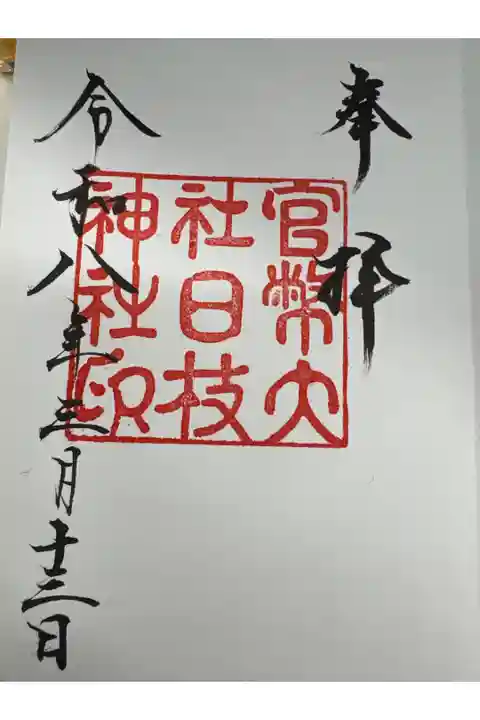 奉拝
官幣大
社日技
神社印
令和八年三月十三日